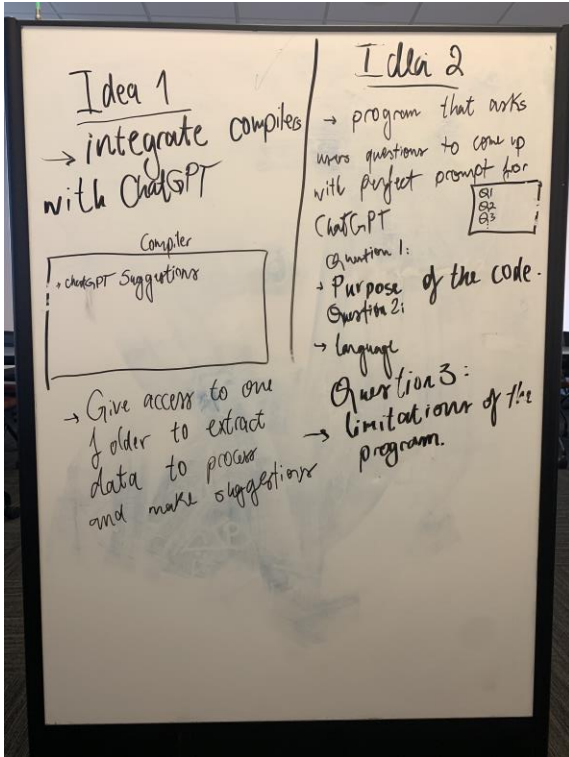 Idea 1
→ integrate compilers
with ChatGPT
Compiler
→ ChatGPT Suggestions
→ Give access to one
folder to extract
data to process
and make suggestions
Idea 2
→ program that asks
users questions to come up
with perfect prompt for
ChatGPT
Q1
Q2
Q3
Question 1:
→ Purpose of the code.
Question 2:
→ language
Question 3:
→ limitations of the
program.